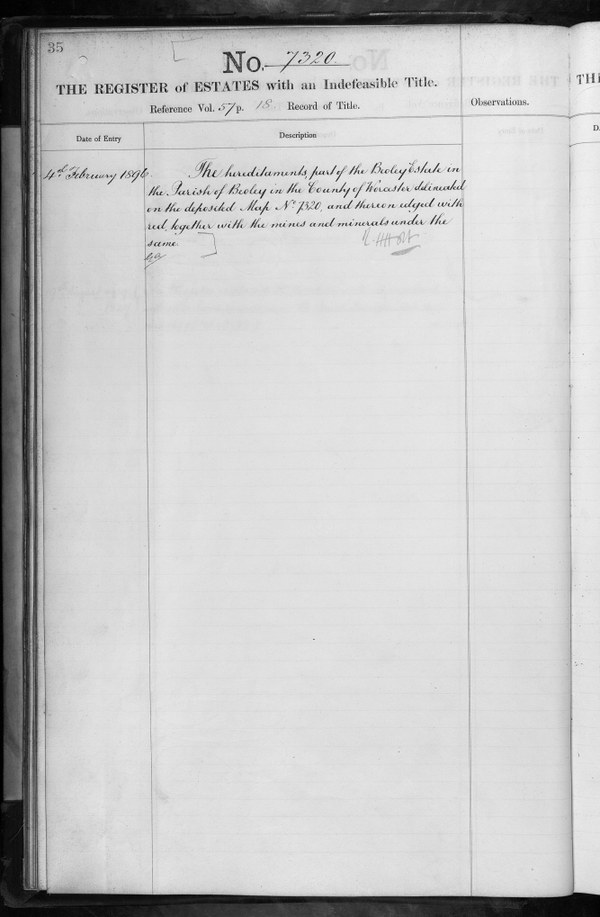 35
No. 7320
THE REGISTER of ESTATES with an Indefeasible Title.
Reference Vol. 57 p. 18 Record of Title.
Observations.
Date of Entry
Description
4th February 1896.
The hereditaments, part of the Beoley Estate in
the Parish of Beoley in the County of Worcester delineated
on the deposited Map No 7320, and thereon edged with
red, together with the mines and minerals under the
same.
TH
D